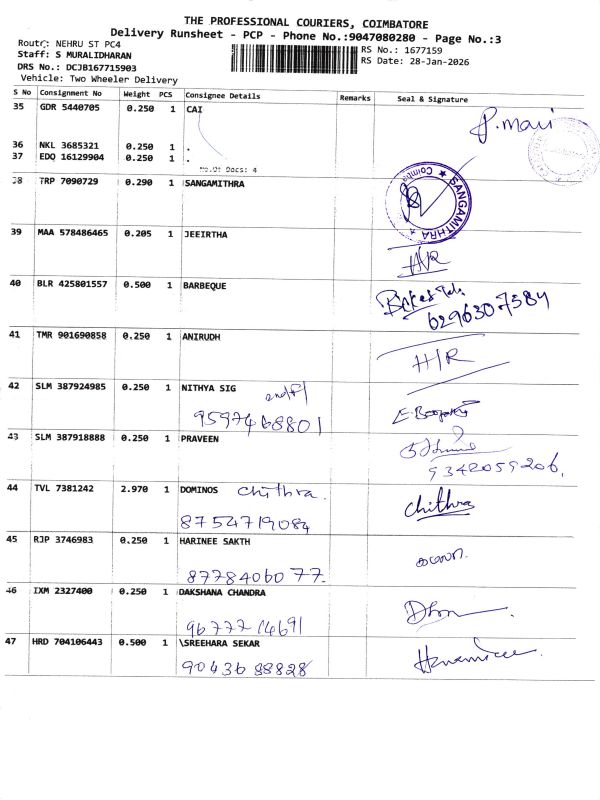 THE PROFESSIONAL COURIERS, COIMBATORE
Delivery Runsheet - PCP - Phone No.:9047080280 - Page No.:3
Route: NEHRU ST PC4
Staff: S MURALIDHARAN
DRS No.: DCJB167715903
Vehicle: Two Wheeler Delivery
RS No.: 1677159
RS Date: 28-Jan-2026
S No Consignment No Weight PCS Consignee Details Remarks Seal & Signature
35 GDR 5440705 0.250 1 CAI
P. mari
36 NKL 3685321 0.250 1 .
37 EDQ 16129904 0.250 1 .
No.Of Docs: 4
38 TRP 7090729 0.290 1 SANGAMITHRA
★ SANGAMITHRA ★
39 MAA 578486465 0.205 1 JEEIRTHA
H/R
40 BLR 425801557 0.500 1 BARBEQUE
6296307584
41 TMR 901690858 0.250 1 ANIRUDH
H/R
42 SLM 387924985 0.250 1 NITHYA SIG
9597468801
43 SLM 387918888 0.250 1 PRAVEEN
9342059206.
44 TVL 7381242 2.970 1 DOMINOS chithra. Chithra
8754719084
45 RJP 3746983 0.250 1 HARINEE SAKTH
8778406077.
46 IXM 2327400 0.250 1 DAKSHANA CHANDRA
9677714691
47 HRD 704106443 0.500 1 \SREEHARA SEKAR
9043688828